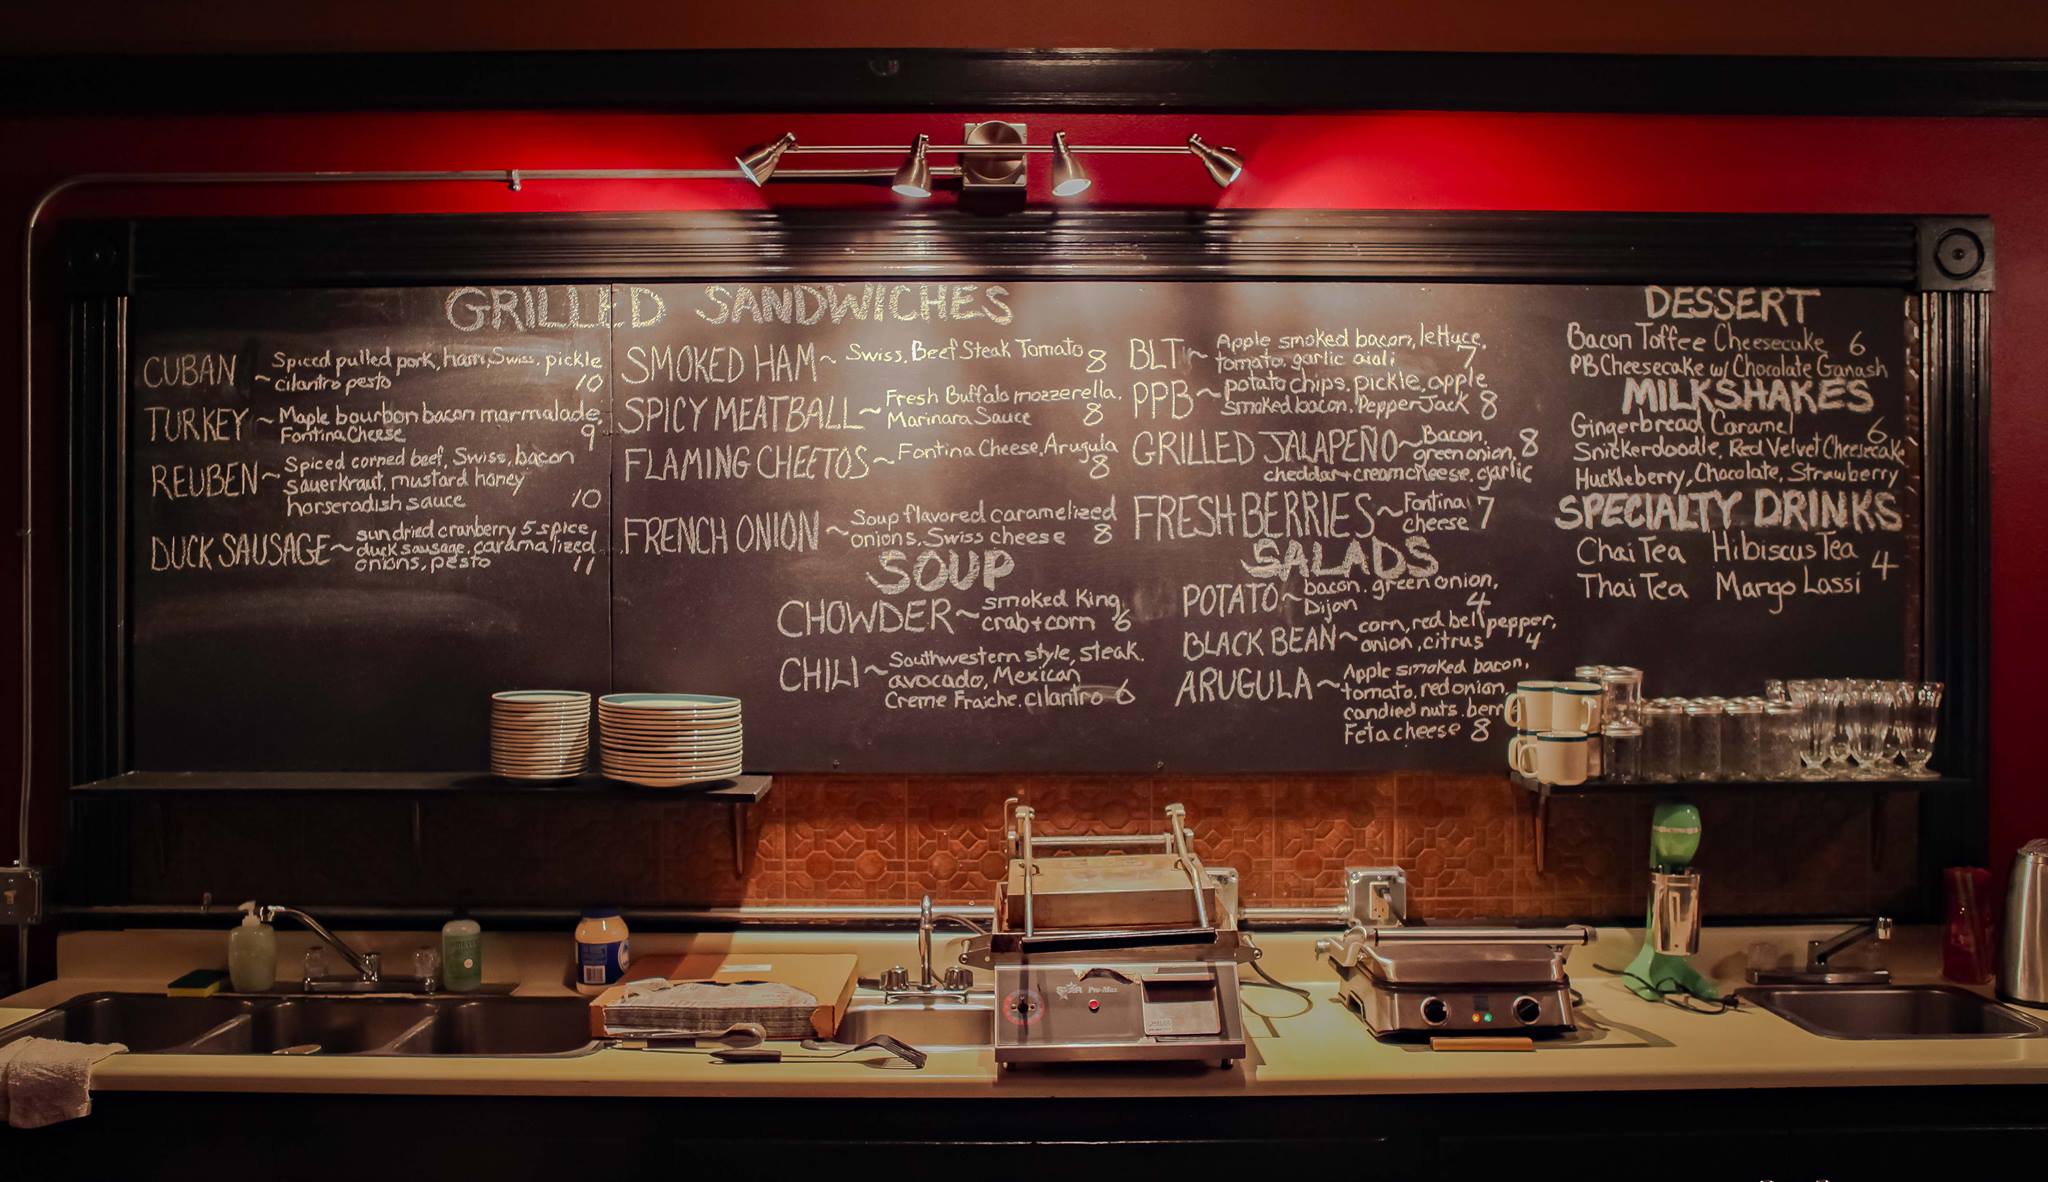 GRILLED SANDWICHES
CUBAN ~ Spiced pulled pork, ham, Swiss, pickle
cilantro pesto 10
TURKEY ~ Maple bourbon bacon marmalade,
Fontina Cheese 9
REUBEN ~ Spiced corned beef, Swiss, bacon
sauerkraut, mustard honey
horseradish sauce 10
DUCK SAUSAGE ~ sundried cranberry 5 spice
duck sausage, caramalized
onions, pesto 11
SMOKED HAM ~ Swiss, Beef Steak Tomato 8
SPICY MEATBALL ~ Fresh Buffalo mozzerella,
Marinara Sauce 8
FLAMING CHEETOS ~ Fontina Cheese, Arugula
8
FRENCH ONION ~ Soup flavored caramelized
onions, Swiss cheese 8
BLT ~ Apple smoked bacon, lettuce,
tomato, garlic aioli 7
PPB ~ potato chips, pickle, apple
smoked bacon, PepperJack 8
GRILLED JALAPEÑO ~ Bacon,
green onion, 8
cheddar + creamcheese, garlic
FRESH BERRIES ~ Fontina
cheese 7
SOUP
CHOWDER ~ smoked King
crab + corn 6
CHILI ~ Southwestern style, steak,
avocado, Mexican
Creme Fraiche, cilantro 6
SALADS
POTATO ~ bacon, green onion,
Dijon 4
BLACK BEAN ~ corn, red bell pepper,
onion, citrus 4
ARUGULA ~ Apple smoked bacon,
tomato, red onion,
candied nuts,
Feta cheese 8
DESSERT
Bacon Toffee Cheesecake 6
PB Cheesecake w/ Chocolate Ganash
MILKSHAKES
Gingerbread Caramel 6
Snickerdoodle, Red Velvet Cheesecake
Huckleberry, Chocolate, Strawberry
SPECIALTY DRINKS
Chai Tea Hibiscus Tea
4
Thai Tea Mango Lassi
STAR Pro-Max